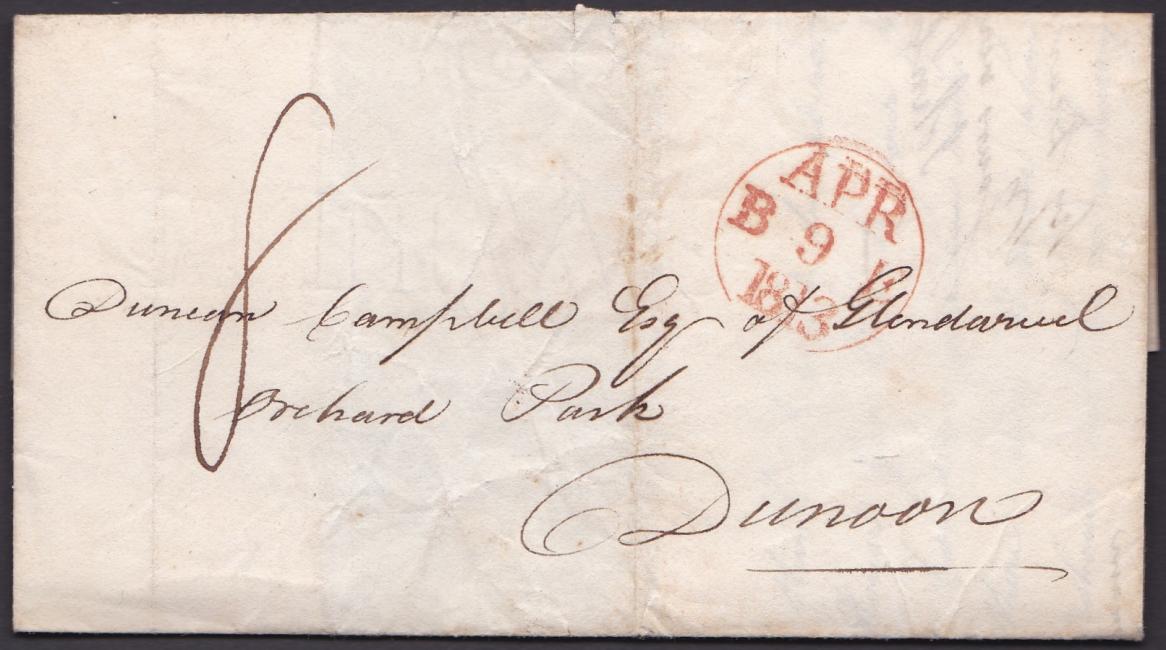 8
APR
B 9
Duncan Campbell Esq of Glendaruel
Orchard Park
Dunoon